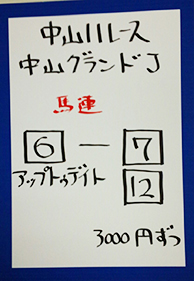 中山11レース
中山グランドJ
馬連
6 — 7
アップトゥデイト 12
3000円ずつ